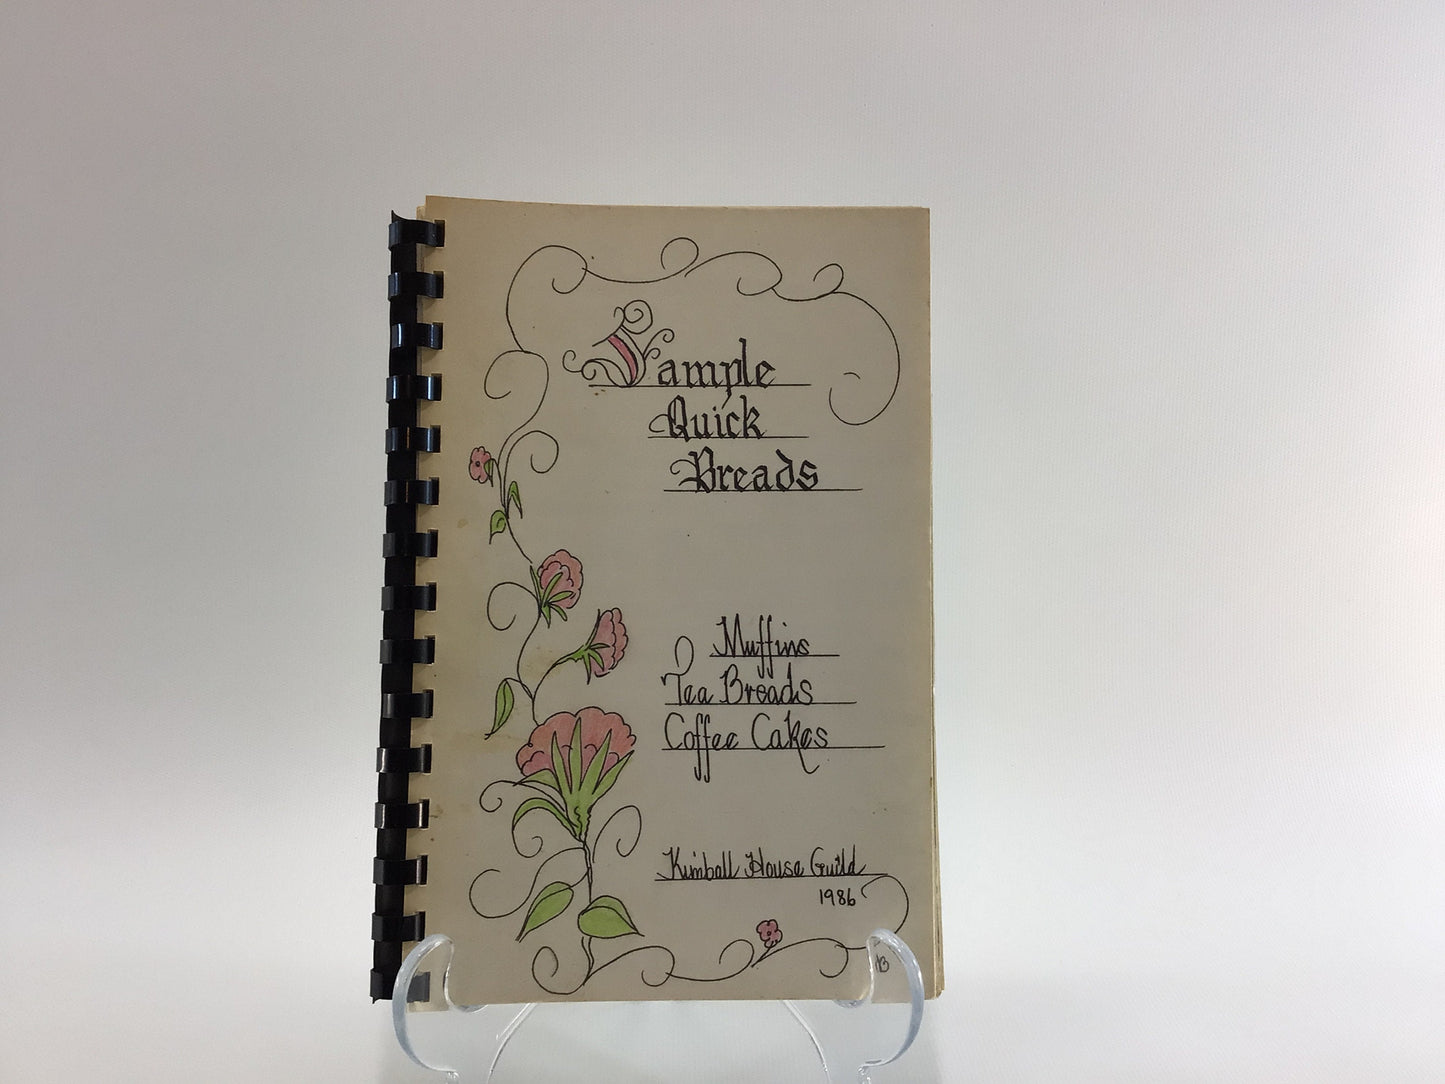 Sample
Quick
Breads
Muffins
Tea Breads
Coffee Cakes
Kimball House Guild
1986